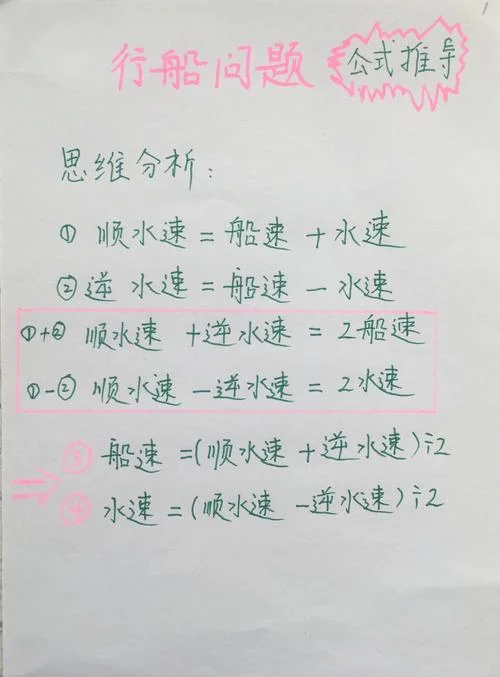 行船问题 公式推导
思维分析:
① 顺水速=船速+水速
②逆水速=船速-水速
①+② 顺水速+逆水速=2船速
①-② 顺水速-逆水速=2水速
③ 船速=(顺水速+逆水速)÷2
④ 水速=(顺水速-逆水速)÷2